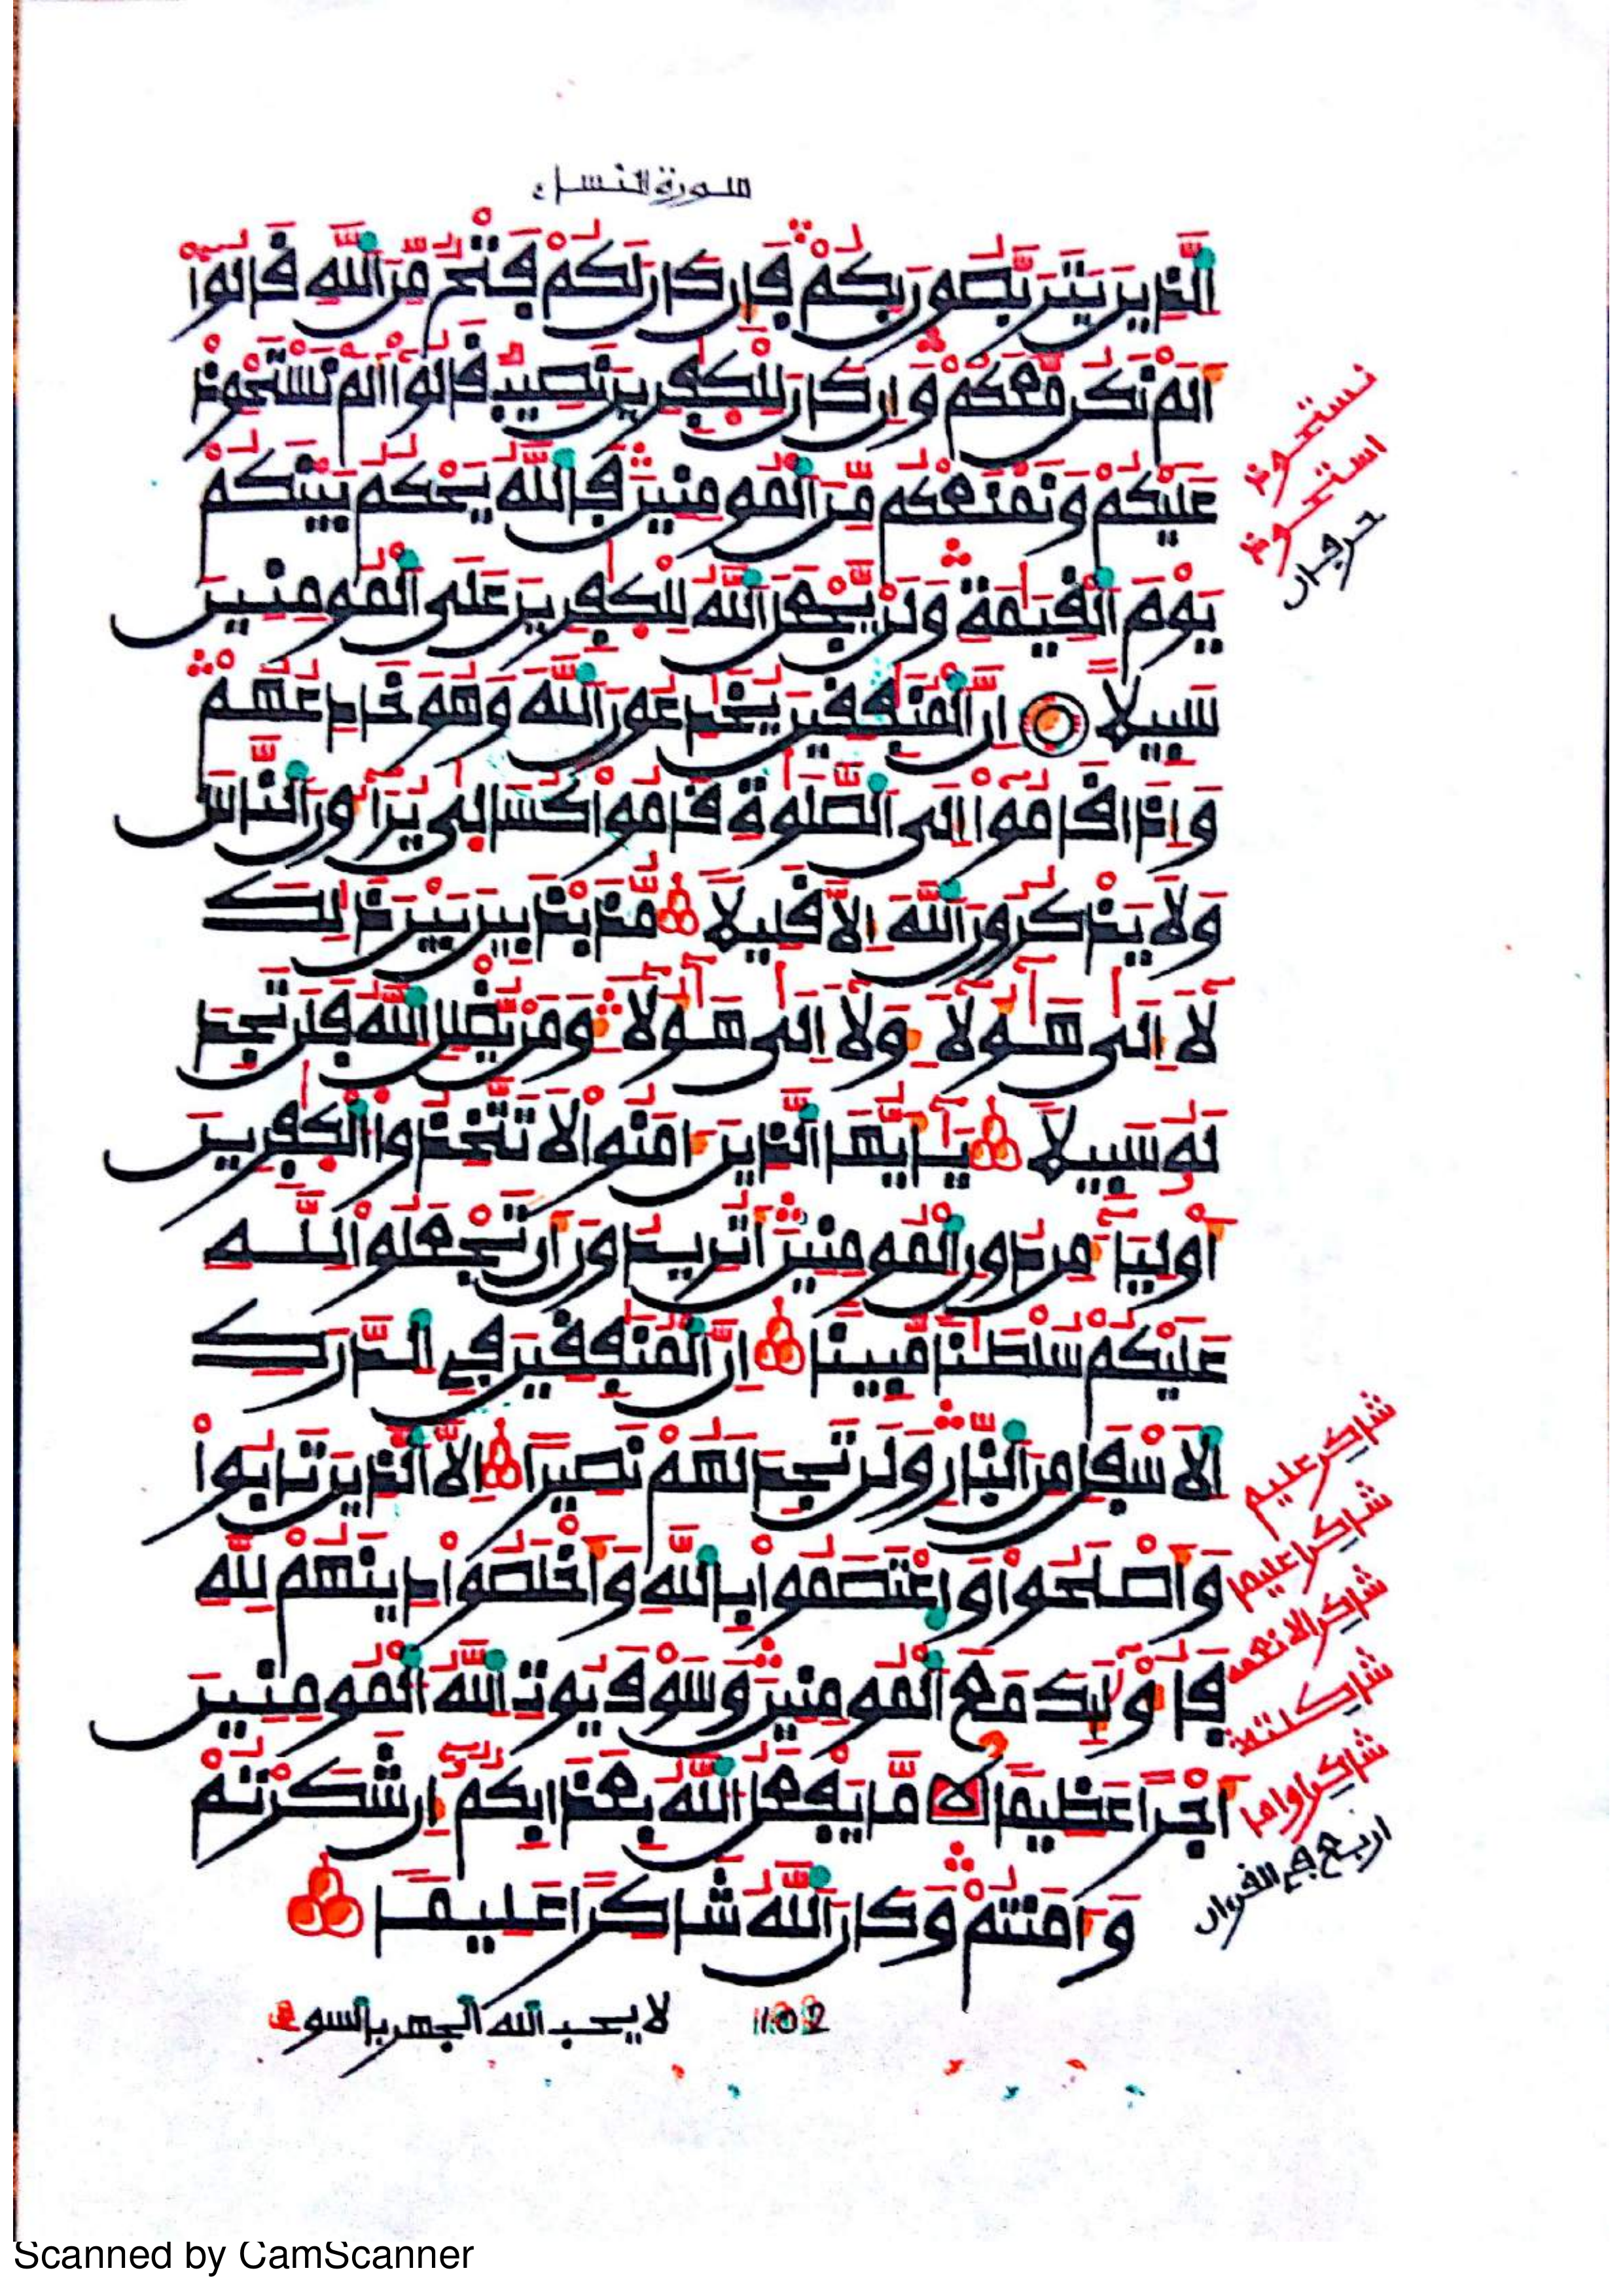 سورة النساء
الذين يتربصون بكم فإن كان لكم فتح من الله قالوا
ألم نكن معكم وإن كان للكفرين نصيب قالوا ألم نستحوذ
عليكم ونمنعكم من المومنين فالله يحكم بينكم
يوم القيمة ولن يجعل الله للكفرين على المومنين
سبيلا إن المنفقين يخدعون الله وهو خادعهم
وإذا قاموا إلى الصلوة قاموا كسالى يرآءون الناس
ولا يذكرون الله إلا قليلا مذبذبين بين ذالك
لا إلى هـؤلاء ولا إلى هـؤلاء ومن يضلل الله فلن تجد
له سبيلا يـأيها الذين ءامنوا لا تتخذوا الكفرين
أولياء من دون المومنين أتريدون أن تجعلوا للـه
عليكم سلطنا مبينا إن المنفقين في الدرك
الاسفل من النار ولن تجد لهم نصيرا إلا الذين تابوا
وأصلحوا واعتصموا بالله وأخلصوا دينهم لله
فأولئك مع المومنين وسوف يوت الله المومنين
أجرا عظيما لا ما يفعل الله بعذابكم إن شكرتم
وءامنتم وكان الله شاكرا عليما
نستحوذ
استحوذ
حرفان
شاكر عليم
شاكرا عليما
شاكرا لانعمه
شاكرا واما
اربع في القرءان
102
لا يحب الله الجهر بالسوء
Scanned by CamScanner